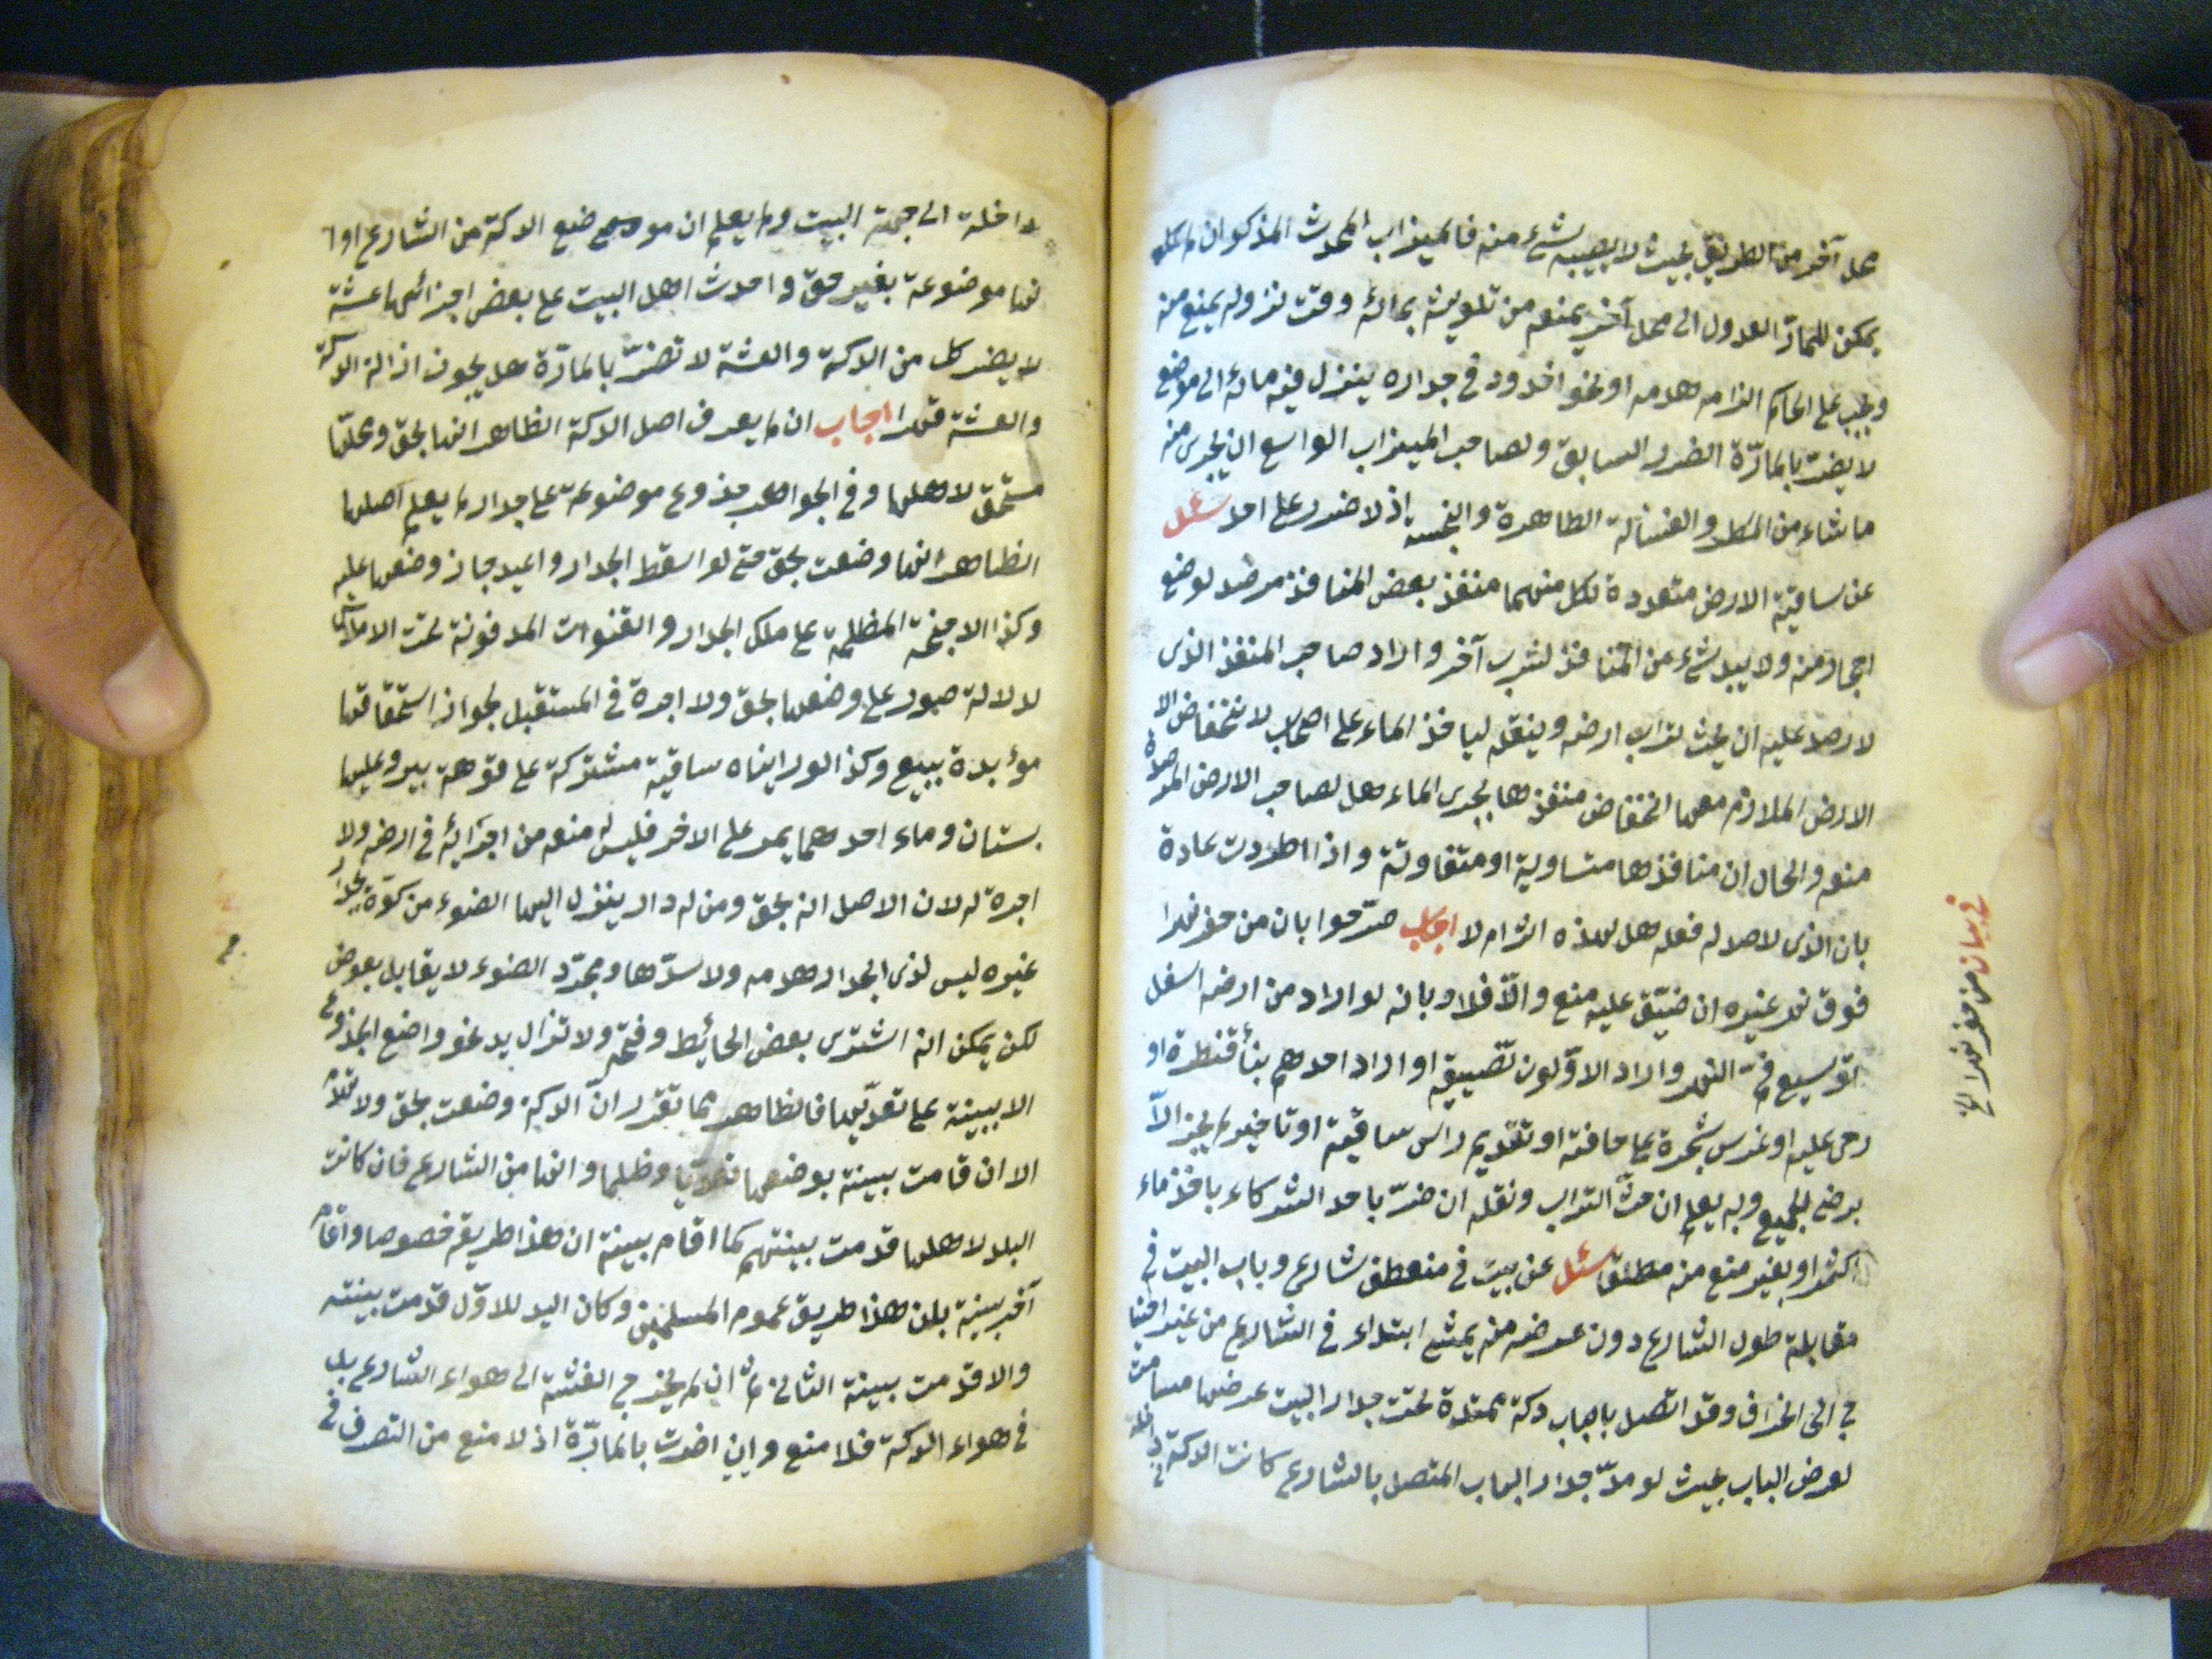 محل آخر من الطريق بحيث لا يصيبه شيء منه فالميزاب المحدث المذكور ان لم
يمكن للمار العدول الى محل آخر يمنعه من تلويثه بمائه وقت نزوله يمنع منه
ويجب على الحاكم الزامه هدمه او نحو اخدود في جداره ينزل فيه ماؤه الى موضع
لا يضر بالمارّة الضرر السابق ولصاحب الميزاب الواسع ان يجرى منه
ما شاء من المطر والغسالة الطاهرة والنجسة اذ لا ضرر على احد سئل
عن ساقية الارض متعددة لكل منهما منفذ بعض المنافذ مرصد لوضع
احجار منه ولا بيد شيء من المنافذ لشرب آخر واراد صاحب المنفذ الذى
لا رصد عليه ان يحث تراب ارضه وينقله ليأخذ الماء على اصحاب لانخفاض الا
الارض الملازم معها انخفاض منفذها بجرى الماء هل لصاحب الارض المرصدة
منعه والحال ان منافذها متساوية او متفاوتة واذا اطردت عادة
بان الذى لا صد له فعله هل لهذه اثر ام لا اجاب صرّحوا بان من حفر نهرا
فوق نهر غيره ان ضيّق عليه منع والّا فلا وبانه لو اراد من ارضه اسفل
توسيع فم النهر واراد الاوّلون تضييقه او اراد احدهم بناء قنطرة او
رحى عليه او غرس شجرة على حافته او تقديم راس ساقية او تاخيره لم يجز الّا
برضى الجميع وبه يعلم ان حثّ التراب ونقله ان ضرّ باحد الشركاء باخذ ماء
اكثر او بغير منع منه مطلقا سئل عن بيت في منعطف شارع وباب البيت في
مقابلة طول الشارع دون عرضه منه يمشى ابتداء في الشارع من غير احتيا
ج الى انحراف وقد اتصل بالباب دكة ممتدة تحت جدار البيت عرضها مسامت
لعرض الباب بحيث لو مدّ جدار الباب المتصل بالشارع كانت الدكة داخلة
في بيان من حفر نهرا الخ
داخلة الى جهة البيت ولم يعلم ان موضع الدكة من الشارع او ا
نها موضوعة بغير حق واحدث اهل البيت على بعض اجزائها عشة
لا يضر كل من الدكة والعشة لا تضرّ بالمارّة هل يجوز ازالة الدكة
والعشة قهرا اجاب ان لم يعرف اصل الدكة الظاهر انها بحق ومحلّها
مستحق لاهلها وفي الجواهر جذوع موضوعة على جدار لم يعلم اصلها
الظاهر انها وضعت بحق حتى لو اسقط الجدار واعيد جاز وضعها عليه
وكذا الاجنحة المظلة على ملك الجدار والقنوات المدفونة تحت الاملاك
لدلالة صور على وضعها بحق ولا اجرة في المستقبل لجواز استحقاقها
مؤبدة ببيع وكذا لو راينا ساقية مشتركة على فوهة بير وعليها
بستان وماء احدهما يمر على الاخر فليس له منعه من اجرائه في ارضه ولا
اجرة له لان الاصل انه بحق ومن له دار ينزل اليها الضوء من كوّة بجدار
غيره ليس لذى الجدار هدمه ولا سدّها ومجرّد الضوء لا يقابل بعوض
لكن يمكن انه اشترى بعض الحائط وفتحه ولا تزال يد نحو واضع الجذوع
الا ببينة على تعديها فالظاهر مما تقرر انّ الدكة وضعت بحق ولا
الا ان قامت بينة بوضعها تعديا وظلما وانها من الشارع فان كانت
اليد لاهلها قدمت بينتهم كما اقام بينة ان هذا طريقه خصوصا واقام
آخر بينة بان هذا طريق عموم المسلمين وكان اليد للاوّل قدمت بينته
والا قدمت بينة الثانى ثم ان لم يخرج العشة الى هواء الشارع بل
في هواء الدكة فلا منع وان اضرت بالمارّة اذ لا منع من التصرف في